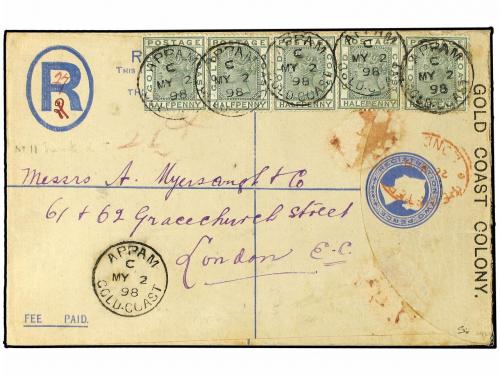 POSTAGE POSTAGE POSTAGE
HALFPENNY HALFPENNY HALFPENNY HALFPENNY HALFPENNY
APPAM
C
MY 2
98
GOLD-COAST
APPAM
C
MY 2
98
GOLD-COAST
APPAM
C
MY 2
98
GOLD-COAST
APPAM
C
MY 2
98
APPAM
C
MY 2
98
GOLD-COAST
R
R
THIS
TH
Messrs A.
61 & 62 Gracechurch Street
London E.C.
GOLD COAST COLONY.
APPAM
C
MY 2
98
GOLD-COAST
FEE PAID.